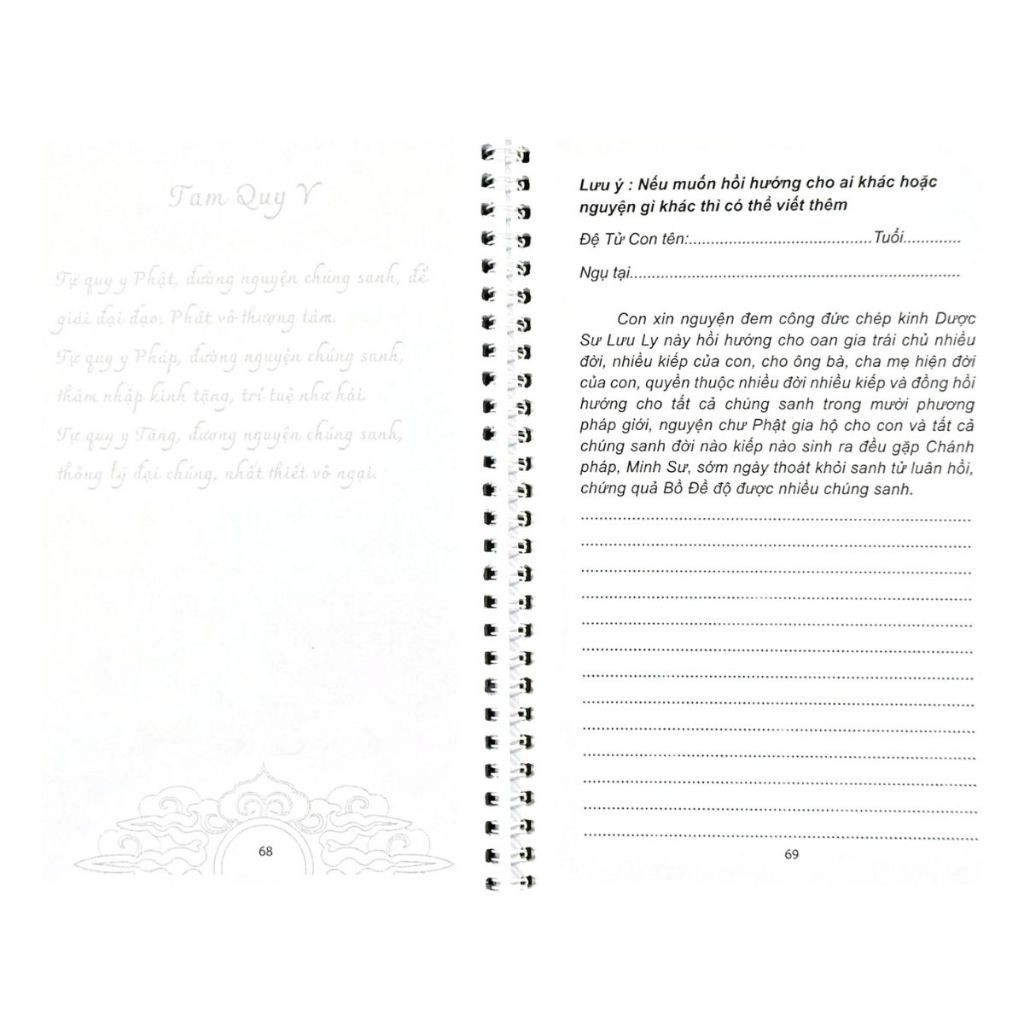 Tam Quy Y
Tự quy y Phật, đương nguyện chúng sanh, để
giải đại đạo, Phát vô thượng tâm.
Tự quy y Pháp, đương nguyện chúng sanh,
thâm nhập kinh tạng, trí tuệ như hải.
Tự quy y Tăng, đương nguyện chúng sanh,
thống lý đại chúng, nhất thiết vô ngại.
68
Lưu ý : Nếu muốn hồi hướng cho ai khác hoặc
nguyện gì khác thì có thể viết thêm
Đệ Tử Con tên:..........................................Tuổi.............
Ngụ tại...........................................................................
Con xin nguyện đem công đức chép kinh Dược
Sư Lưu Ly này hồi hướng cho oan gia trái chủ nhiều
đời, nhiều kiếp của con, cho ông bà, cha mẹ hiện đời
của con, quyến thuộc nhiều đời nhiều kiếp và đồng hồi
hướng cho tất cả chúng sanh trong mười phương
pháp giới, nguyện chư Phật gia hộ cho con và tất cả
chúng sanh đời nào kiếp nào sinh ra đều gặp Chánh
pháp, Minh Sư, sớm ngày thoát khỏi sanh tử luân hồi,
chứng quả Bồ Đề độ được nhiều chúng sanh.
69